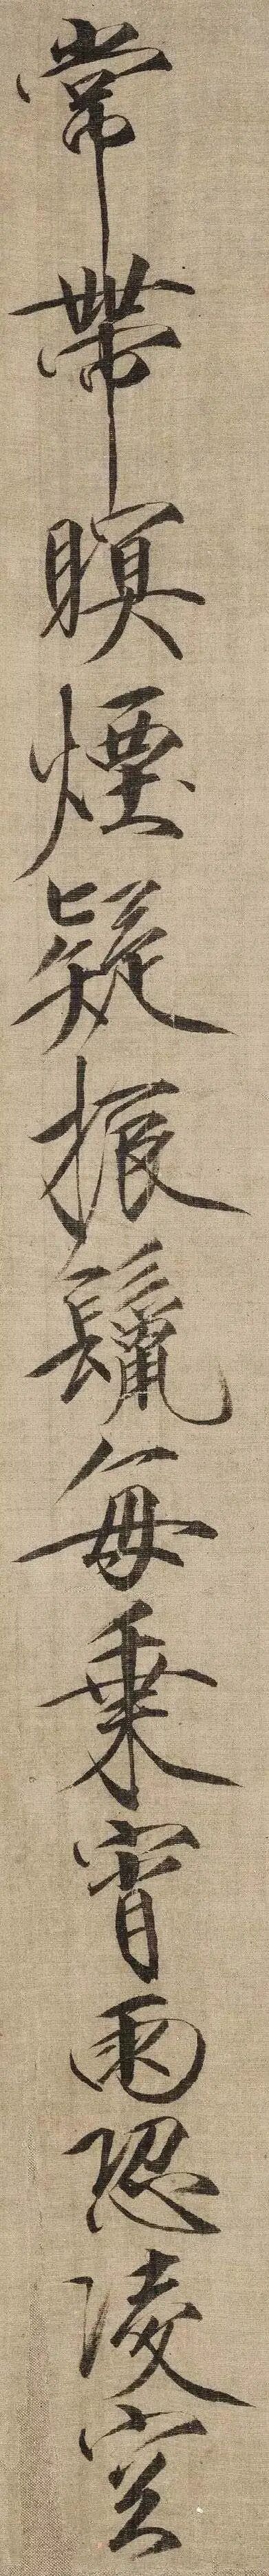 常帶瞑煙疑振鬣每乗宵雨恐陵空